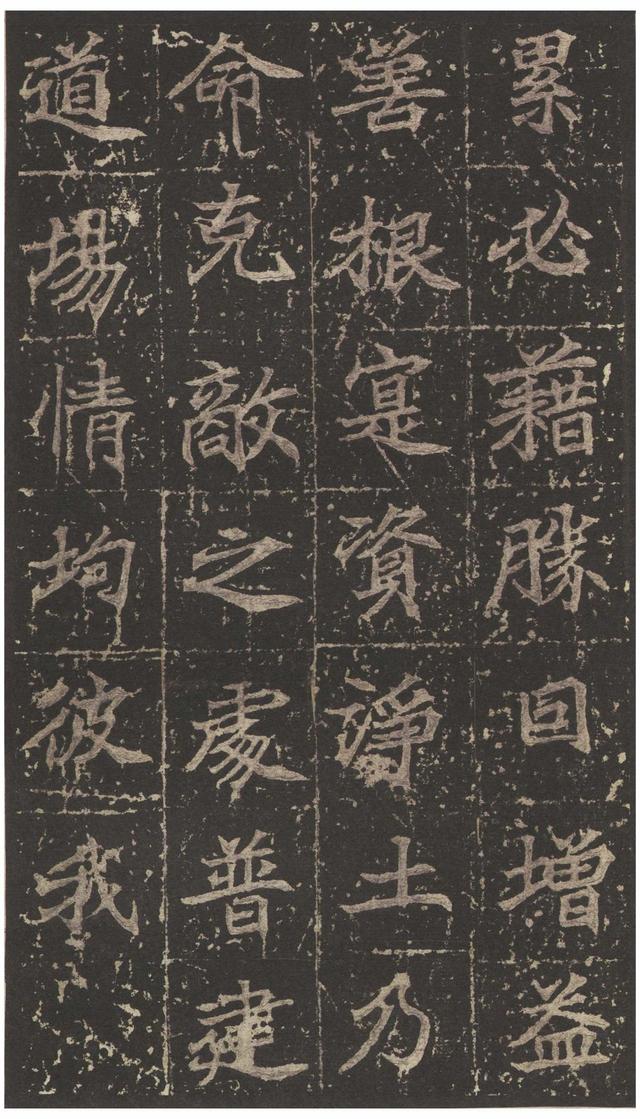 累必藉勝囙增益
善根寔資淨土乃
命克敵之處普建
道場情均彼我